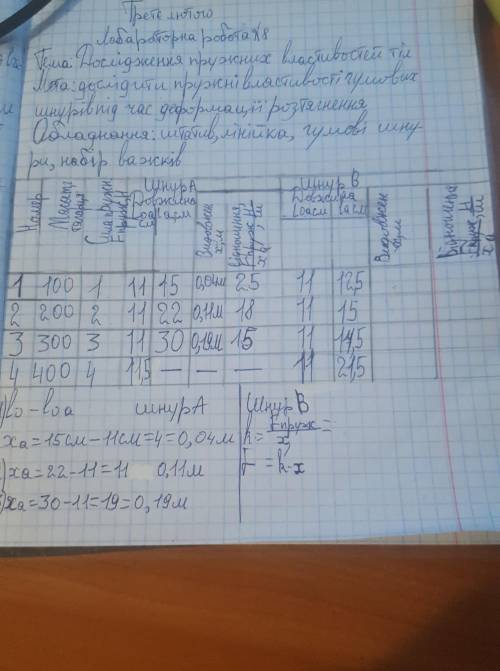 Трете лютого
Лабараторна робота №8
Тема: Дослідження пружних властивостей тіл
Мета: дослідити пружні властивості гумових
шнурів під час деформації розтягнення
Обладнання: штатив, лінійка, гумові шну-
ри, набір важків
Номер Маса Сила пружн Fпруж, Н Шнур А Довжина l0а см lа см Видовжен x, м Відношення Fпруж/xа, Н/м Шнур В Довжина l0в см lв см Видовжен x, м Відношення Fпруж/x, Н/м
1 100 1 11 15 0,04м 25 11 12,5
2 200 2 11 22 0,11м 18 11 15
3 300 3 11 30 0,19м 15 11 17,5
4 400 4 11,5 — — — 11 21,5
l0 - l0а шнур А
xа = 15см - 11см = 4 = 0,04м
xа = 22 - 11 = 11 0,11м
xа = 30 - 11 = 19 = 0,19м
Шнур В
k = Fпруж/x =
F = k · x